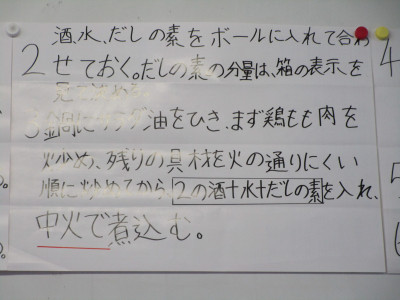 2 酒、水、だしの素をボールに入れて合わ
せておく。だしの素の分量は、箱の表示、を
見て決める。
3 鍋にサラダ油をひき、まず鶏もも肉を
炒め、残りの具材を火の通りにくい
順に炒めてから2の酒+水+だしの素を入れ、
中火で煮込む。
4
5
6